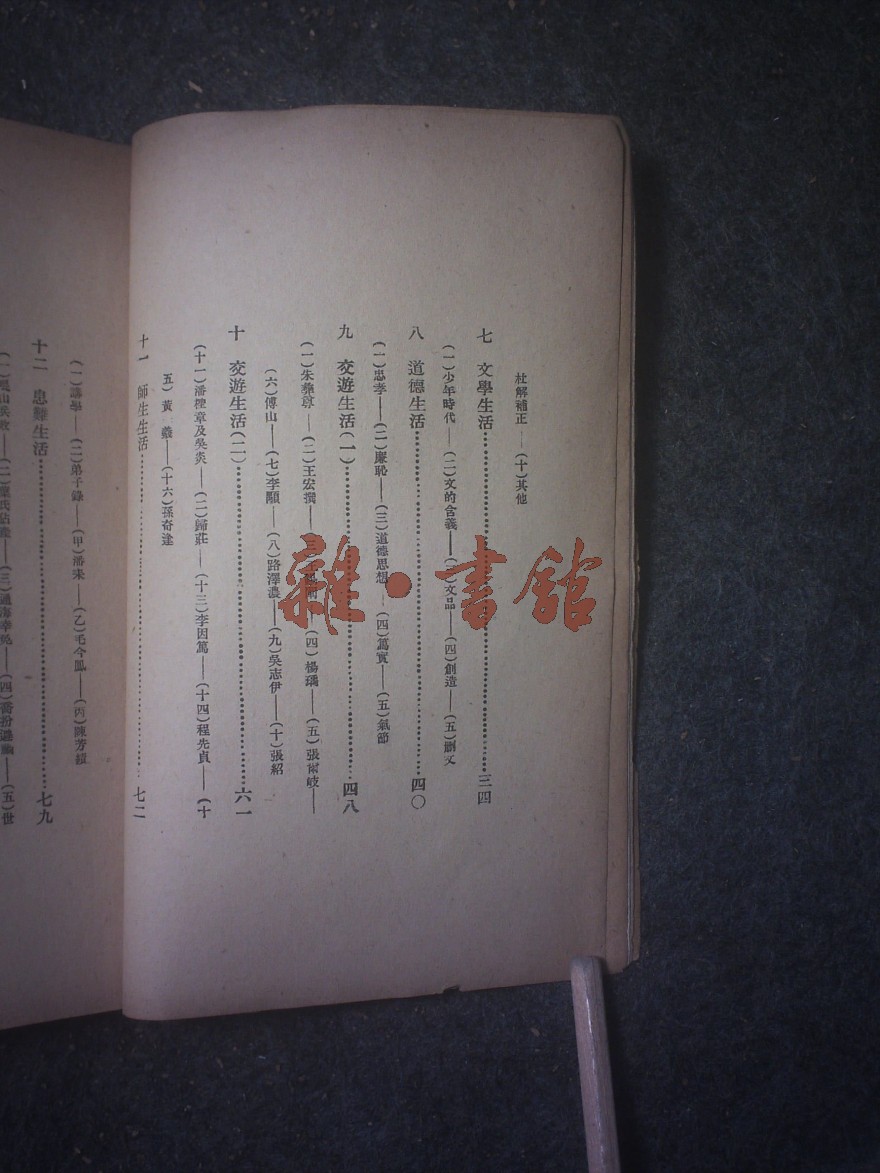 杜解補正——(十)其他
七 文學生活……三四
(一)少年時代——(二)文的含義——(三)文品——(四)創造——(五)刪文
八 道德生活……四〇
(一)忠孝——(二)廉恥——(三)道德思想——(四)篤實——(五)氣節
九 交遊生活(一)……四八
(一)朱彝尊——(二)王宏撰——(四)楊瑀——(五)張爾岐——
(六)傅山——(七)李顒——(八)路澤濃——(九)吳志伊——(十)張紹
十 交遊生活(二)……六一
(十一)潘檉章及吳炎——(二)歸莊——(十三)李因篤——(十四)程先貞——(十
五)黃羲——(十六)孫奇逢
十一 師生生活……七二
(一)講學——(二)弟子錄——(甲)潘耒——(乙)毛今鳳——(丙)陳芳績
十二 患難生活……七九
(五)世
雜·書館